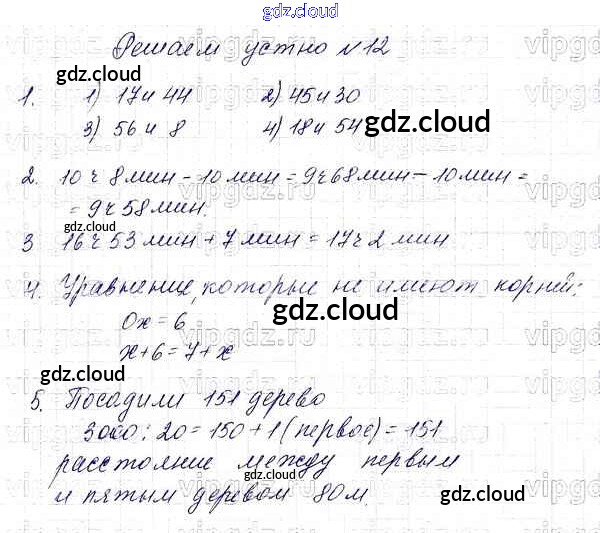 gdz.cloud
Решаем устно №12
gdz.cloud
1. 1) 17 и 44 2) 45 и 30
3) 56 и 8 4) 18 и 54
gdz.cloud
gdz.cloud
2. 10 ч 8 мин - 10 мин = 9 ч 68 мин - 10 мин =
= 9 ч 58 мин.
gdz.cloud
3 16 ч 53 мин + 7 мин = 17 ч 2 мин
gdz.cloud
4. Уравнение, которые не имеют корней:
0x = 6
gdz.cloud
x + 6 = 7 + x
gdz.cloud
5. Посадили 151 дерево
gdz.cloud
3000 : 20 = 150 + 1 (первое) = 151
расстояние между первым
gdz.cloud
и пятым деревом 80 м.
gdz.cloud